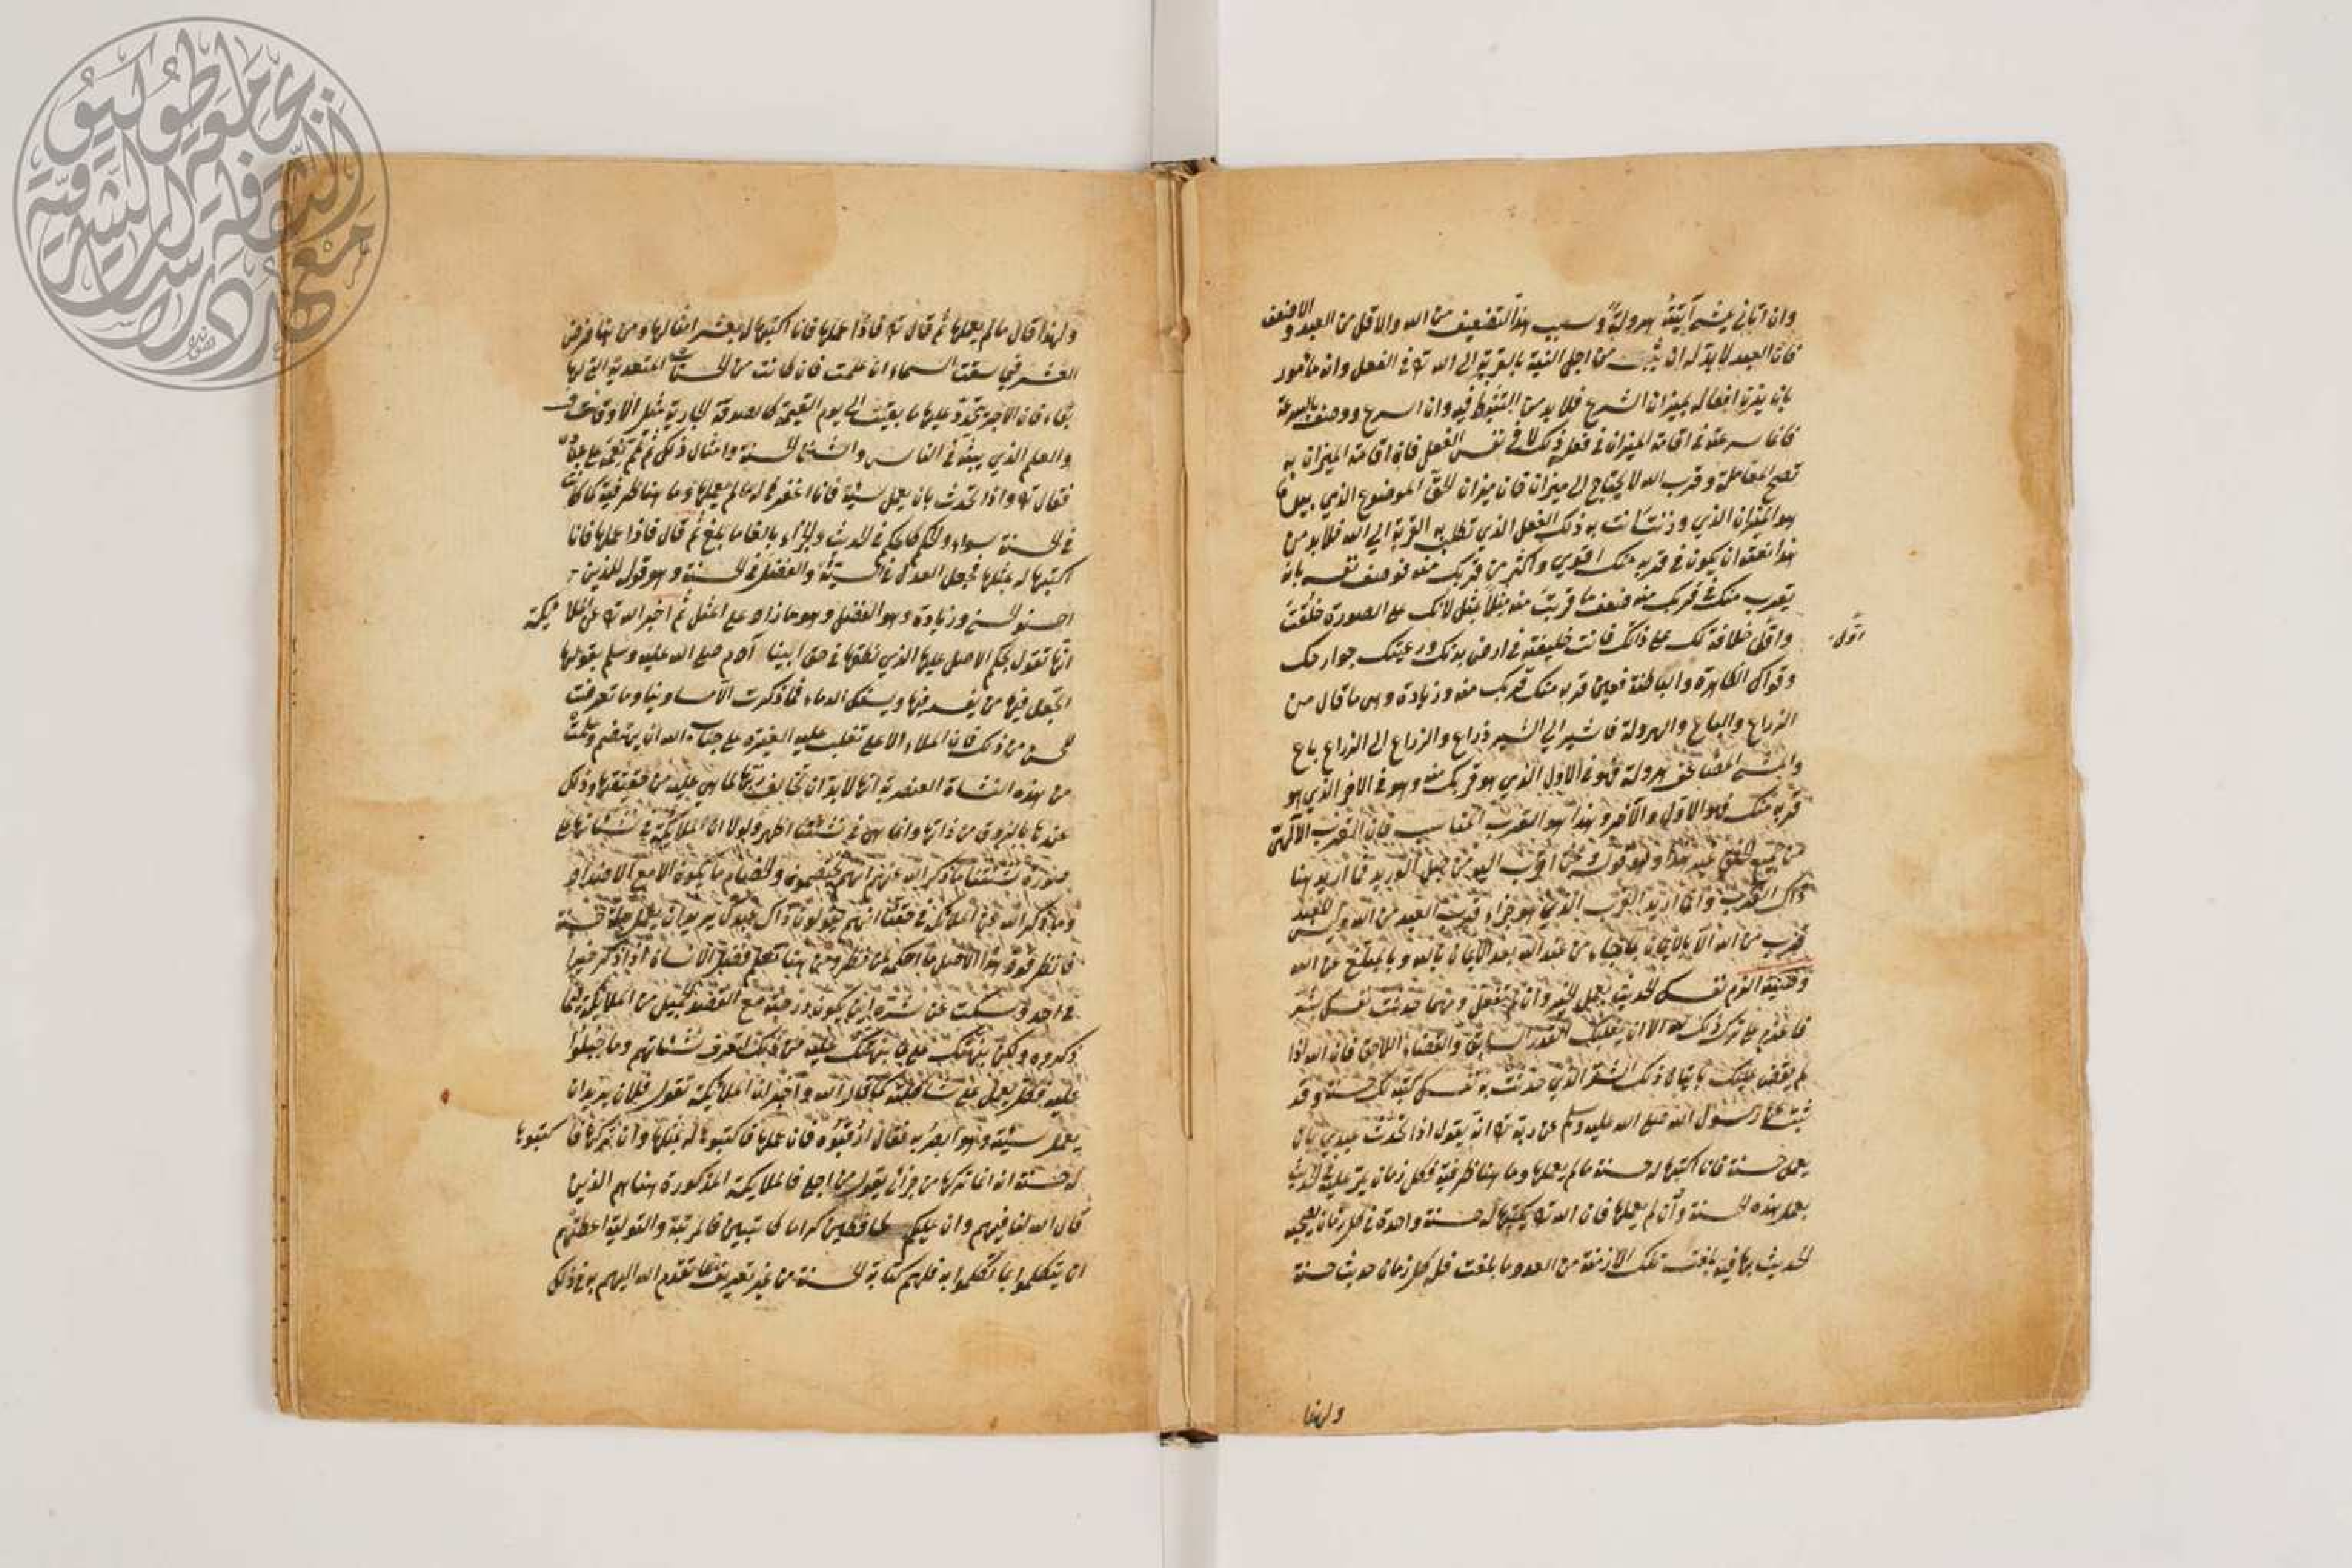 وان اتاني يمشي آتيته هرولة وسبب هذا التضعيف من الله والاقل من العبد والاضعف
فان العبد لا بد له ان يتثبت من اجل النية بالقربة الى الله تع في الفعل وانه مأمور
بان يزن افعاله بميزان الشرع فلا بد من التثبط فيه وان اسرع ووصف بالسرعة
فانما سرعته في اقامة الميزان في فعله ذلك لا في نفس الفعل فان اقامة الميزان به
تصح المعاملة وقرب الله لا يحتاج الى ميزان فان ميزان الحق الموضوع الذي بيده
هو الميزان الذي وزنت انت به ذلك الفعل الذي تطلب به القربة الى الله فلا بد من
هذا نعته ان يكون في قربه منك اقوي واكثر من قربك منه فوصف نفسه بانه
يقرب منك في قربك منه ضعف ما قربت منه مثلا بمثل لانك على الصورة خلقت
واقل خلافة لك على ذاتك فانت خليفة في ارض بدنك ورعيتك جوارحك
اول
وقواك الظاهرة والباطنة فعين قربه منك قربك منه وزيادة وهى ما قال من
الذراع والباع والهرولة فالشبر الي الشبر ذراع والذراع الى الذراع باع
والمشي المضاعف هرولة فهو في الاول الذي هو قربك منه وهو في الاخر الذي هو
قربه منك فهو الاول والآخر وهذا هو القرب المناسب فان القرب الالهى
من جميع الخلق غير هذا وهو قوله ونحن اقرب اليه من حبل الوريد فما اريد هنا
ذاك القرب وانما اريد القرب الذي هو جزاء قرب العبد من الله وليس للعبد
قرب من الله الا بالايمان بما جاء من عند الله بعد الايمان بالله وبالمبلغ عن الله
وصية الزم نفسك الحديث بعمل الخير وان لم تفعل ومهما حدثت نفسك بشر
فاعزم على ترك ذلك لله الا ان يغلبك القدر السابق والقضاء اللاحق فان الله اذا
لم يقض عليك باتيان ذلك الشر الذي حدثت به نفسك كتبه لك حسنة وقد
ثبت عن رسول الله صلى الله عليه وسلم عن ربه تع انه يقول اذا تحدث عبدي بان
يعمل حسنة فانا اكتبها له حسنة ما لم يعملها وما هنا ظرفية فكل زمان يمر عليه في الحديث
بعمل هذه الحسنة وان لم يعملها فان الله تع يكتبها له حسنة واحدة في كل زمان يصحبه
الحديث بها فيه بلغت تلك الازمنة من العدد ما بلغت فله بكل زمان حديث حسنة
ولهذا
ولهذا قال ما لم يعملها ثم قال تع فاذا عملها فانا اكتبها له بعشر امثالها ومن هنا فرض
العشر في سقت السماء ان علمت فان كانت من الحسنات المتعدية التي لها
بقاء فان الاجر يتجدد عليها ما بقيت الى يوم القيمة كالصدقة الجارية مثل الاوقاف
والعلم الذي يبثه في الناس والسنة الحسنة وامثال ذلك ثم تمم نعمه على عباده
فقال تع واذا تحدث بان يعمل سيئة فانا اغفرها له ما لم يعملها وما هنا ظرفية كما كانت
في الحسنة سواء والحكم كالحكم في الحدث والجزاء بالغا ما بلغ ثم قال فاذا عملها فانا
اكتبها له بمثلها فجعل العدل في السيئة والفضل في الحسنة وهو قوله للذين
احسنوا الحسنى وزيادة وهو الفضل وهو ما زاد على المثل ثم اخبر الله تع عن الملائكة
انها تقول بحكم الاصل عليها الذي نطقها في حق ابينا آدم صلى الله عليه وسلم بقولها
اتجعل فيها من يفسد فيها ويسفك الدماء فما ذكرت الا مساوينا وما تعرضت
للحسن من ذلك فان الملاء الاعلى تغلب عليه الغيرة على جناب الله ان يهتضم وعلمت
من هذه النشاة العنصرية انها لا بد ان تخالف ربها لما هي عليه من حقيقتها وذلك
عندها بالذوق من ذاتها وانما هى في نشئتنا اظهر ولولا ان الملائكة في نشئاتها على
صورة نشئتنا ما ذكر الله عنهم انهم يختصمون والخصام ما يكون الا مع الاضداد
وما ذكر الله عن الملائكة في حقنا انهم يقولون ذاك عبدك يريد ان يعمل حسنة
فانظر قوة هذا الاصل ما احكمه لمن نظر ومن هنا تعلم فضل الانسان اذا ذكر خيرا
في احد وسكت عن شره اين يكون درجته مع القصد الجميل من الملائكة فيما
ذكروه ولكن نبهتك على ما نبهتك عليه من ذلك لتعرف نشئاتهم وما جبلوا
عليه فكل يعمل على شاكلته كما قال الله واخبر ان الملائكة تقول فلان يريد ان
يعمل سيئة وهو ابصر به فقال ارقبوه فان عملها فاكتبوها له بمثلها وان تركها فاكتبوها
له حسنة انه انما تركها من جراي يقول من اجلي فالملائكة المذكورة هنا هم الذين
قال الله لنا فيهم وان عليكم لحافظين كراما كاتبين فالمرتبة والتولية اعطتهم
ان يتكلموا بما تكلموا به فلهم كتابة الحسنة من غير تعريف بما تقدم الله اليهم به في ذلك